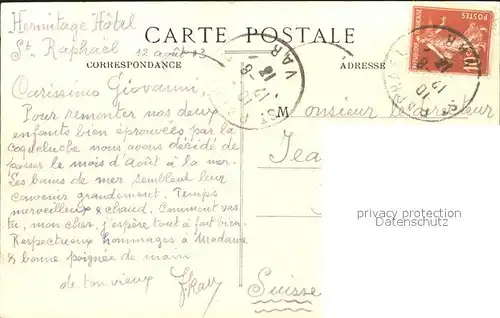 Hermitage Hôtel
St. Raphaël
12 août 13
CARTE POSTALE
CORRESPONDANCE
ADRESSE
Carissimo Giovanni,
Pour remonter nos deux
enfants bien éprouvées par la
coqueluche nous avons décidé de
passer le mois d'Août à la mer.
Les bains de mer semblent leur
convenir grandement. Temps
merveilleux & chaud. Comment vas
tu, mon cher, j'espère tout à fait bien.
Respectueux hommages à Madame
& bonne poignée de main
de ton vieux
Monsieur le directeur
Jea
Suisse
POSTES
VAR
VAR
privacy protection
Datenschutz